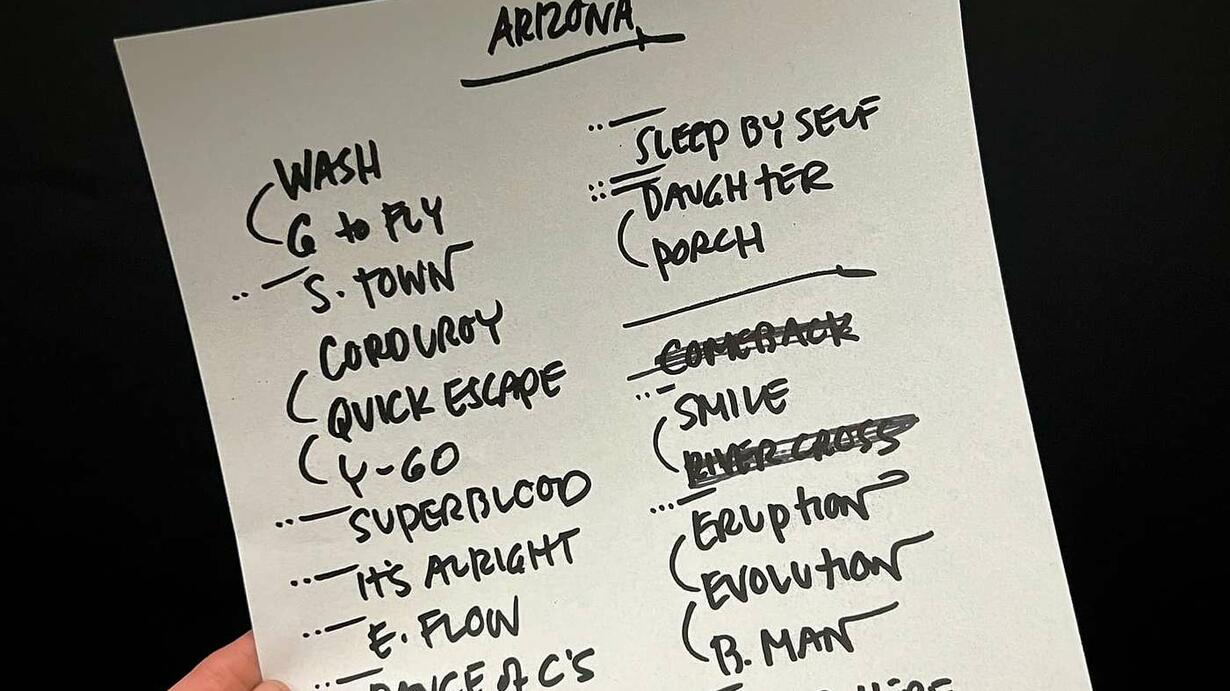 ARIZONA
WASH
G to FLY
S. TOWN
CORDUROY
QUICK ESCAPE
Y-GO
SUPERBLOOD
IT'S ALRIGHT
E. FLOW
DANCE of C'S
SLEEP BY SELF
DAUGHTER
PORCH
COMEBACK
SMILE
RIVER CROSS
ERUPTION
EVOLUTION
B. MAN